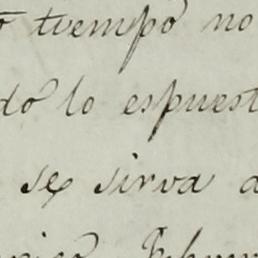 tiempo no
do lo espuest
se sirva a